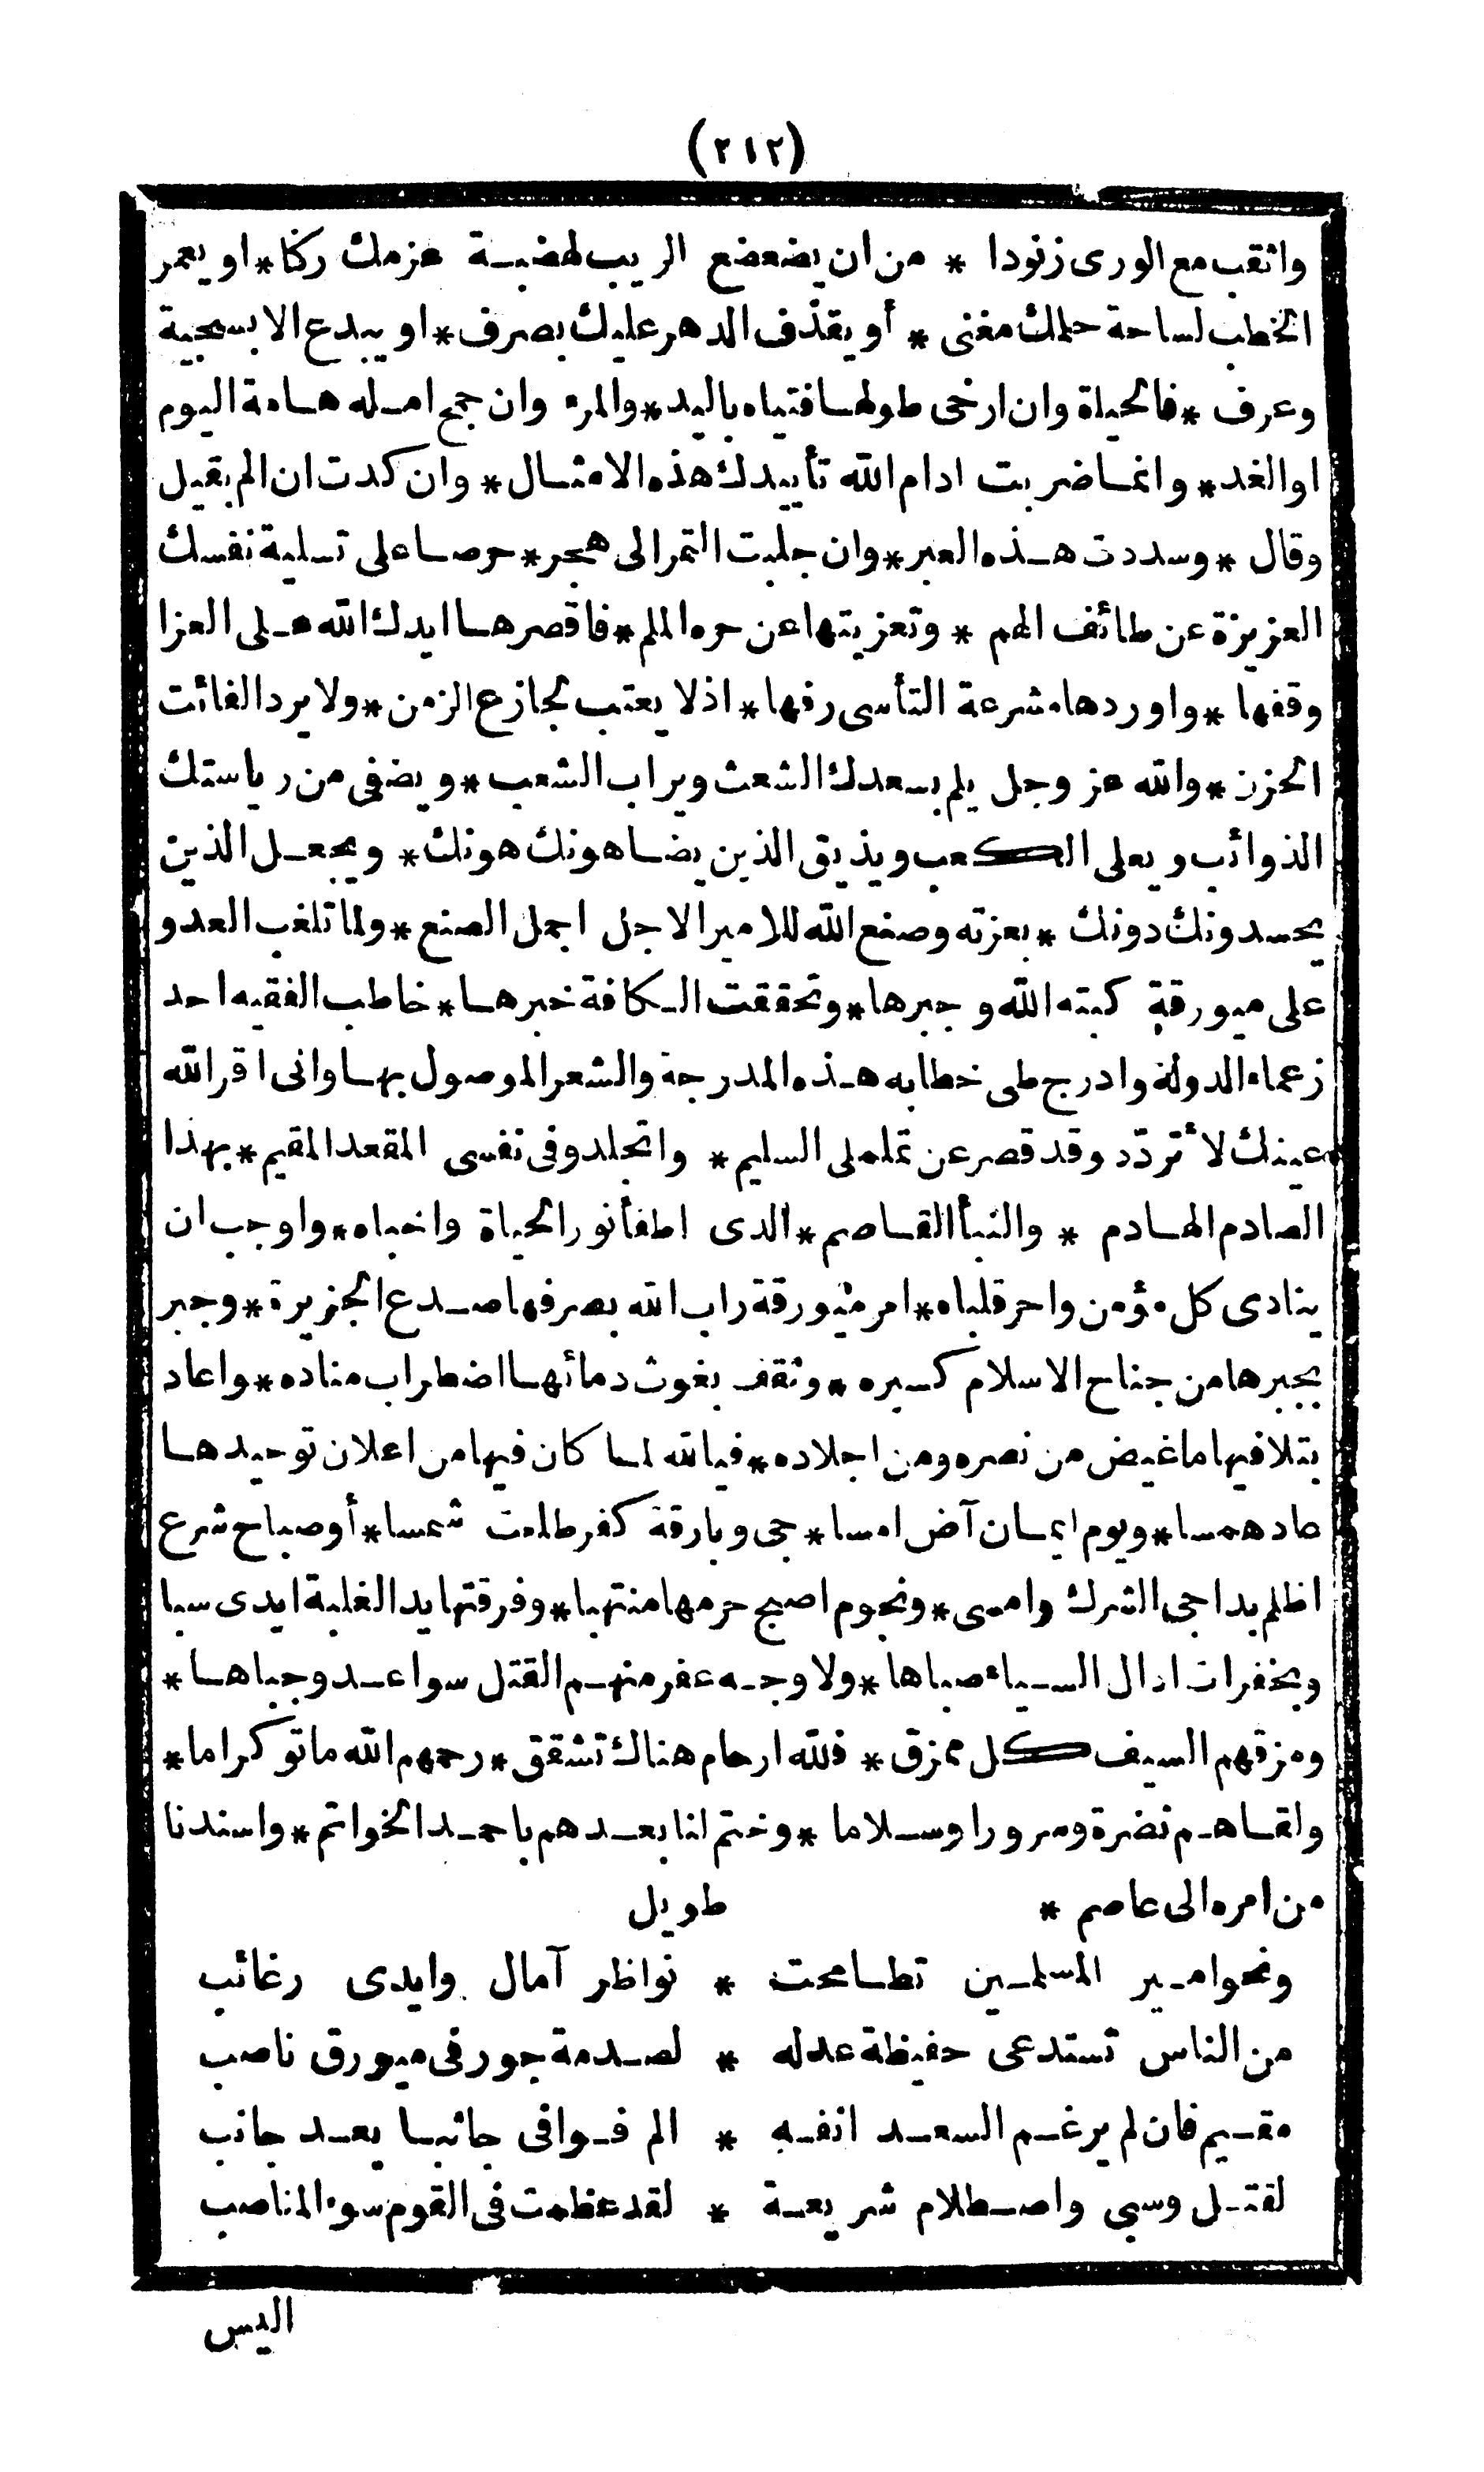 (٢١٢)
واثقب مع الورى زنودا * من ان يضعضع الريب لهضبة عزمك ركنا * او يعمر
الخطب لساحة حملك مغنى * أو يقذف الدهر عليك بصرف * او يبدع الا بسجية
وعرف * فالحياة وان ارخى طولها فتياه باليد * والمرء وان جمح امله هامة اليوم
او الغد * وانما ضربت ادام الله تأييدك هذه الامثال * وان كدت ان الم بقيل
وقال * وسددت هذه العبر * وان جلبت التمر الى هجر * حرصا على تسلية نفسك
العزيزة عن طائف الهم * وتعزيتها عن حره الملم * فاقصرها ايدك الله على العزا
وقفها * واوردها مشرعة التأسى رفها * اذ لا يعتب لجازع الزمن * ولا يرد الفائت
الحزن * والله عز وجل يلم بسعدك الشعث ويراب الشعب * ويضفى من رياستك
الذوائب ويعلى الكعب ويذيق الذين يضاهونك هونك * ويجعل الذين
يحسدونك دونك * بعزته وصنع الله للامير الاجل اجمل الصنع * ولما تلغب العدو
على ميورقة كبته الله وجبرها * وتحققت الكافة خبرها * خاطب الفقيه احد
زعماء الدولة وادرج طى خطابه هذه المدرجة والشعر الموصول بها وانى اقر الله
عينك لأ تردّد وقد قصر عن تململى السليم * واتجلد وفى نفسى المقعد المقيم * بهذا
الصادم الهادم * والنبأ القاصم * الدى اطفأ نور الحياة واخباه * واوجب ان
ينادى كل مؤمن واحر قلباه * امر ميورقة راب الله بصرفها صدع الجزيرة * وجبر
بجبرها من جناح الاسلام كسيره * وثقف بغوث دمائها اضطراب مناده * واعاد
بتلافيها ما غيض من نصره ومن اجلاده * فيالله لما كان فيها من اعلان توحيدها
عاد همسا * ويوم ايمان آض امسا * جى وبارقة كفر طلعت شمسا * أو صباح شرع
اظلم بداجى الشرك وامسى * ونجوم اصبح حرمها منتهبا * وفرقتها يد الغلبة ايدى سبا
وبخفرات ادال السباء صباها * ولا وجه عفر منهم القتل سواعد وجباها *
ومزقهم السيف كل ممزق * فلله ارحام هناك تشقق * رحمهم الله ماتوكراما *
ولقاهم نضرة وسرورا وسلاما * وختم لنا بعدهم باحمد الخواتم * واسندنا
من امره الى عاصم * طويل
ونحوامير المسلمين تطامحت * نواظر آمال وايدى رغائب
من الناس تستدعى حفيظة عدله * لصدمة جور فى ميورق ناصب
مقيم فان لم يرغم السعد انفه * الم فوافى جانبا بعد جانب
لقتل وسبى واصطلام شريعة * لقد عظمت فى القوم سوء المناصب
اليس